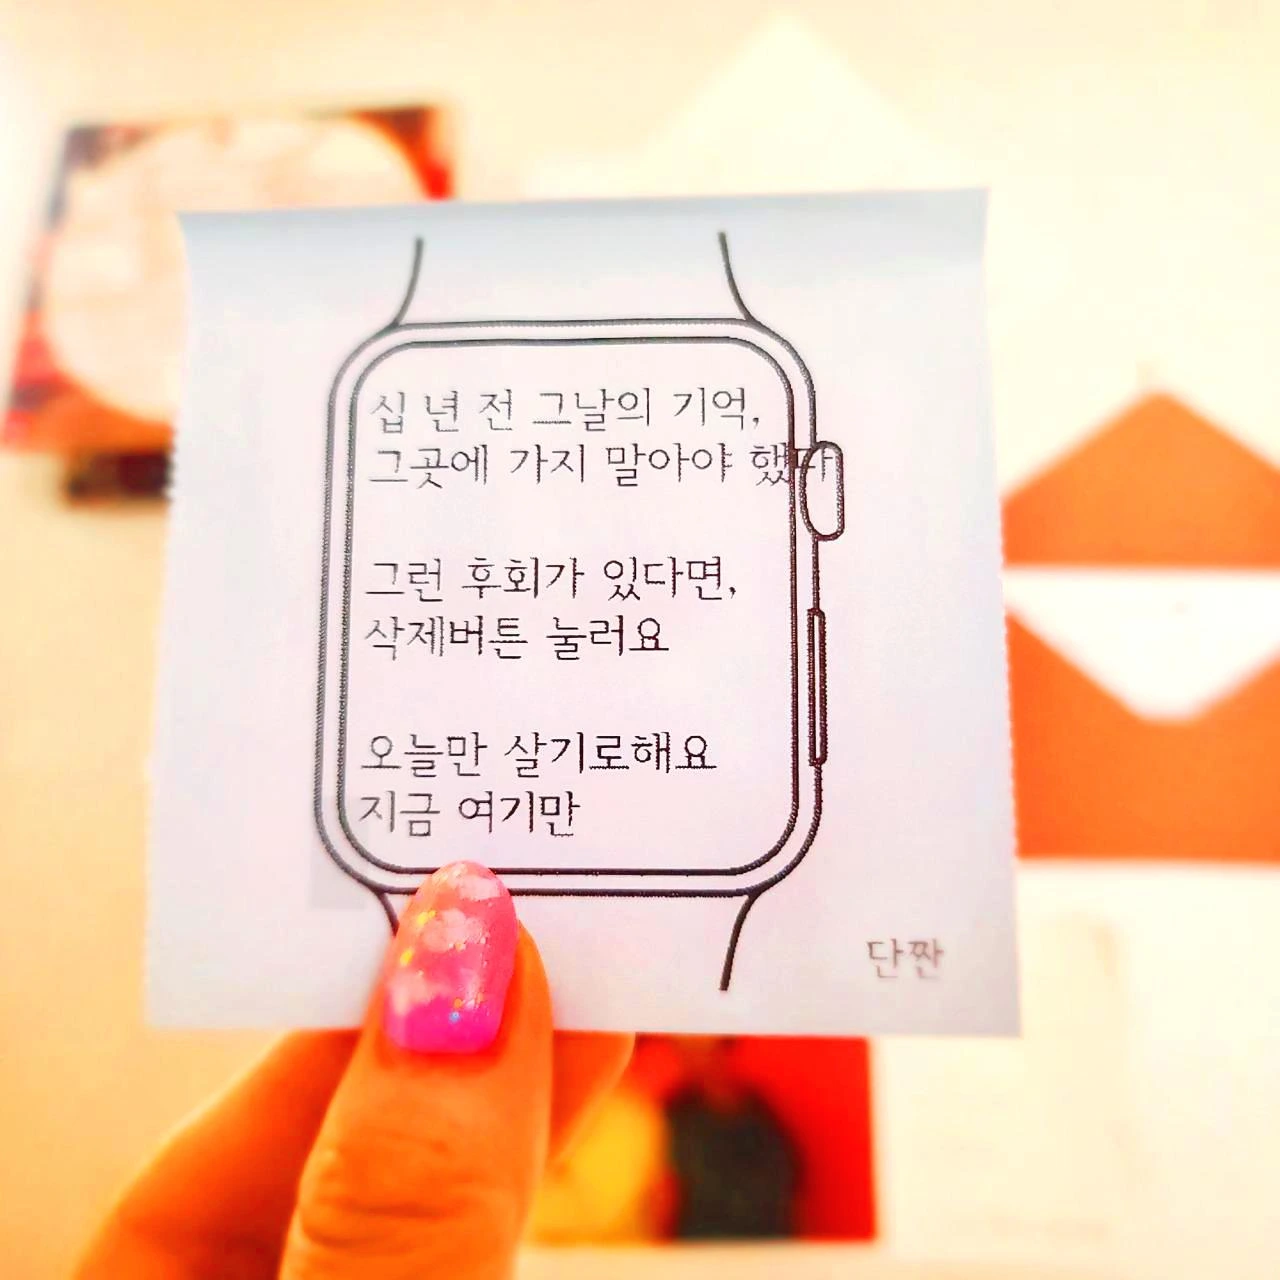 십 년 전 그날의 기억,
그곳에 가지 말아야 했다
그런 후회가 있다면,
삭제버튼 눌러요
오늘만 살기로해요
지금 여기만
단짠